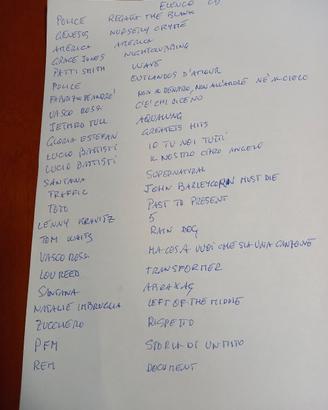 ELENCO CD
POLICE REGATTA THE BLANK
GENESIS NURSERY CRYME
AMERICA AMERICA
GRACE JONES NIGHTCLUBBING
PATTI SMITH WAVE
POLICE OUTLANDOS D'AMOUR
FABRIZIO DE ANDRE' NON AL DENARO, NON ALL'AMORE NE' AL CIELO
VASCO ROSSI C'E' CHI DICE NO
JETHRO TULL AQUALUNG
GLORIA ESTEFAN GREATEST HITS
LUCIO BATTISTI IO TU NOI TUTTI
LUCIO BATTISTI IL NOSTRO CARO ANGELO
SANTANA SUPERNATURAL
TRAFFIC JOHN BARLEYCORN MUST DIE
TOTO PAST TO PRESENT
LENNY KRAVITZ 5
TOM WAITS RAIN DOG
VASCO ROSSI MA COSA VUOI CHE SIA UNA CANZONE
LOU REED TRANSFORMER
SANTANA ABRAXAS
NATALIE IMBRUGLIA LEFT OF THE MIDDLE
ZUCCHERO RISPETTO
PFM STORIA DI UN MINUTO
REM DOCUMENT